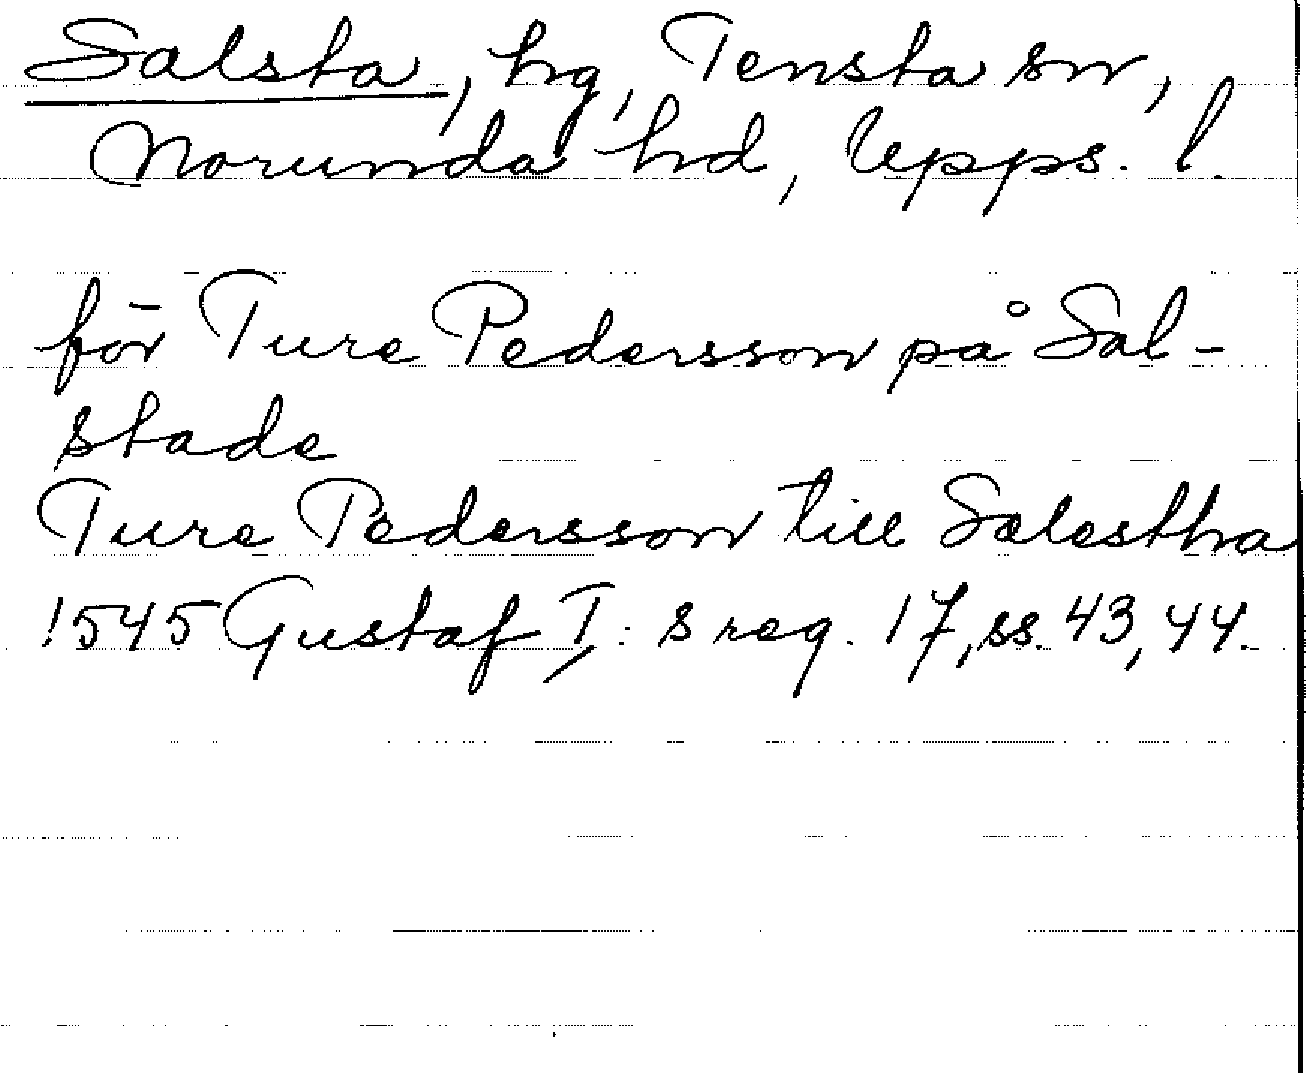 Salsta, hg, Tensta sn,
Norunda hd, Upps. l.
för Ture Pedersson på Sal-
stade
Ture Pedersson till Salestha
1545 Gustaf I:s reg. 17, ss. 43, 44.